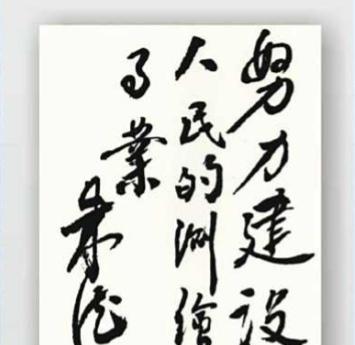 努力建设
人民的测繪
事業
朱德